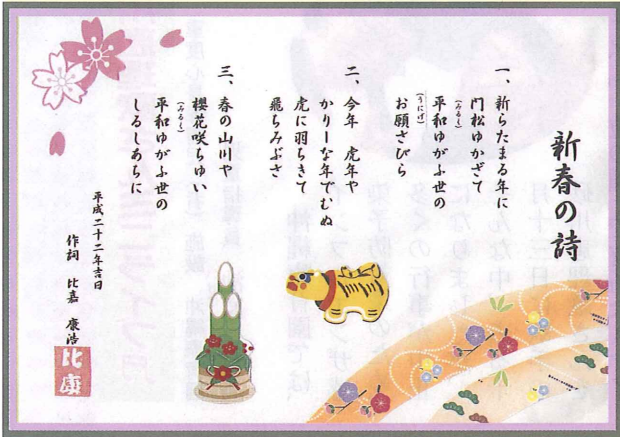 新春の詩
一、新らたまる年に
門松ゆかざて
平和ゆがふ世の
(みるく)
お願さびら
(うにげ)
二、今年 虎年や
かりーな年でむぬ
虎に羽ちきて
飛ちみぶさ
三、春の山川や
櫻花咲ちゅい
平和ゆがふ世の
(みるく)
しるしあらに
平成二十二年吉日
作詞 比嘉 康浩
比康